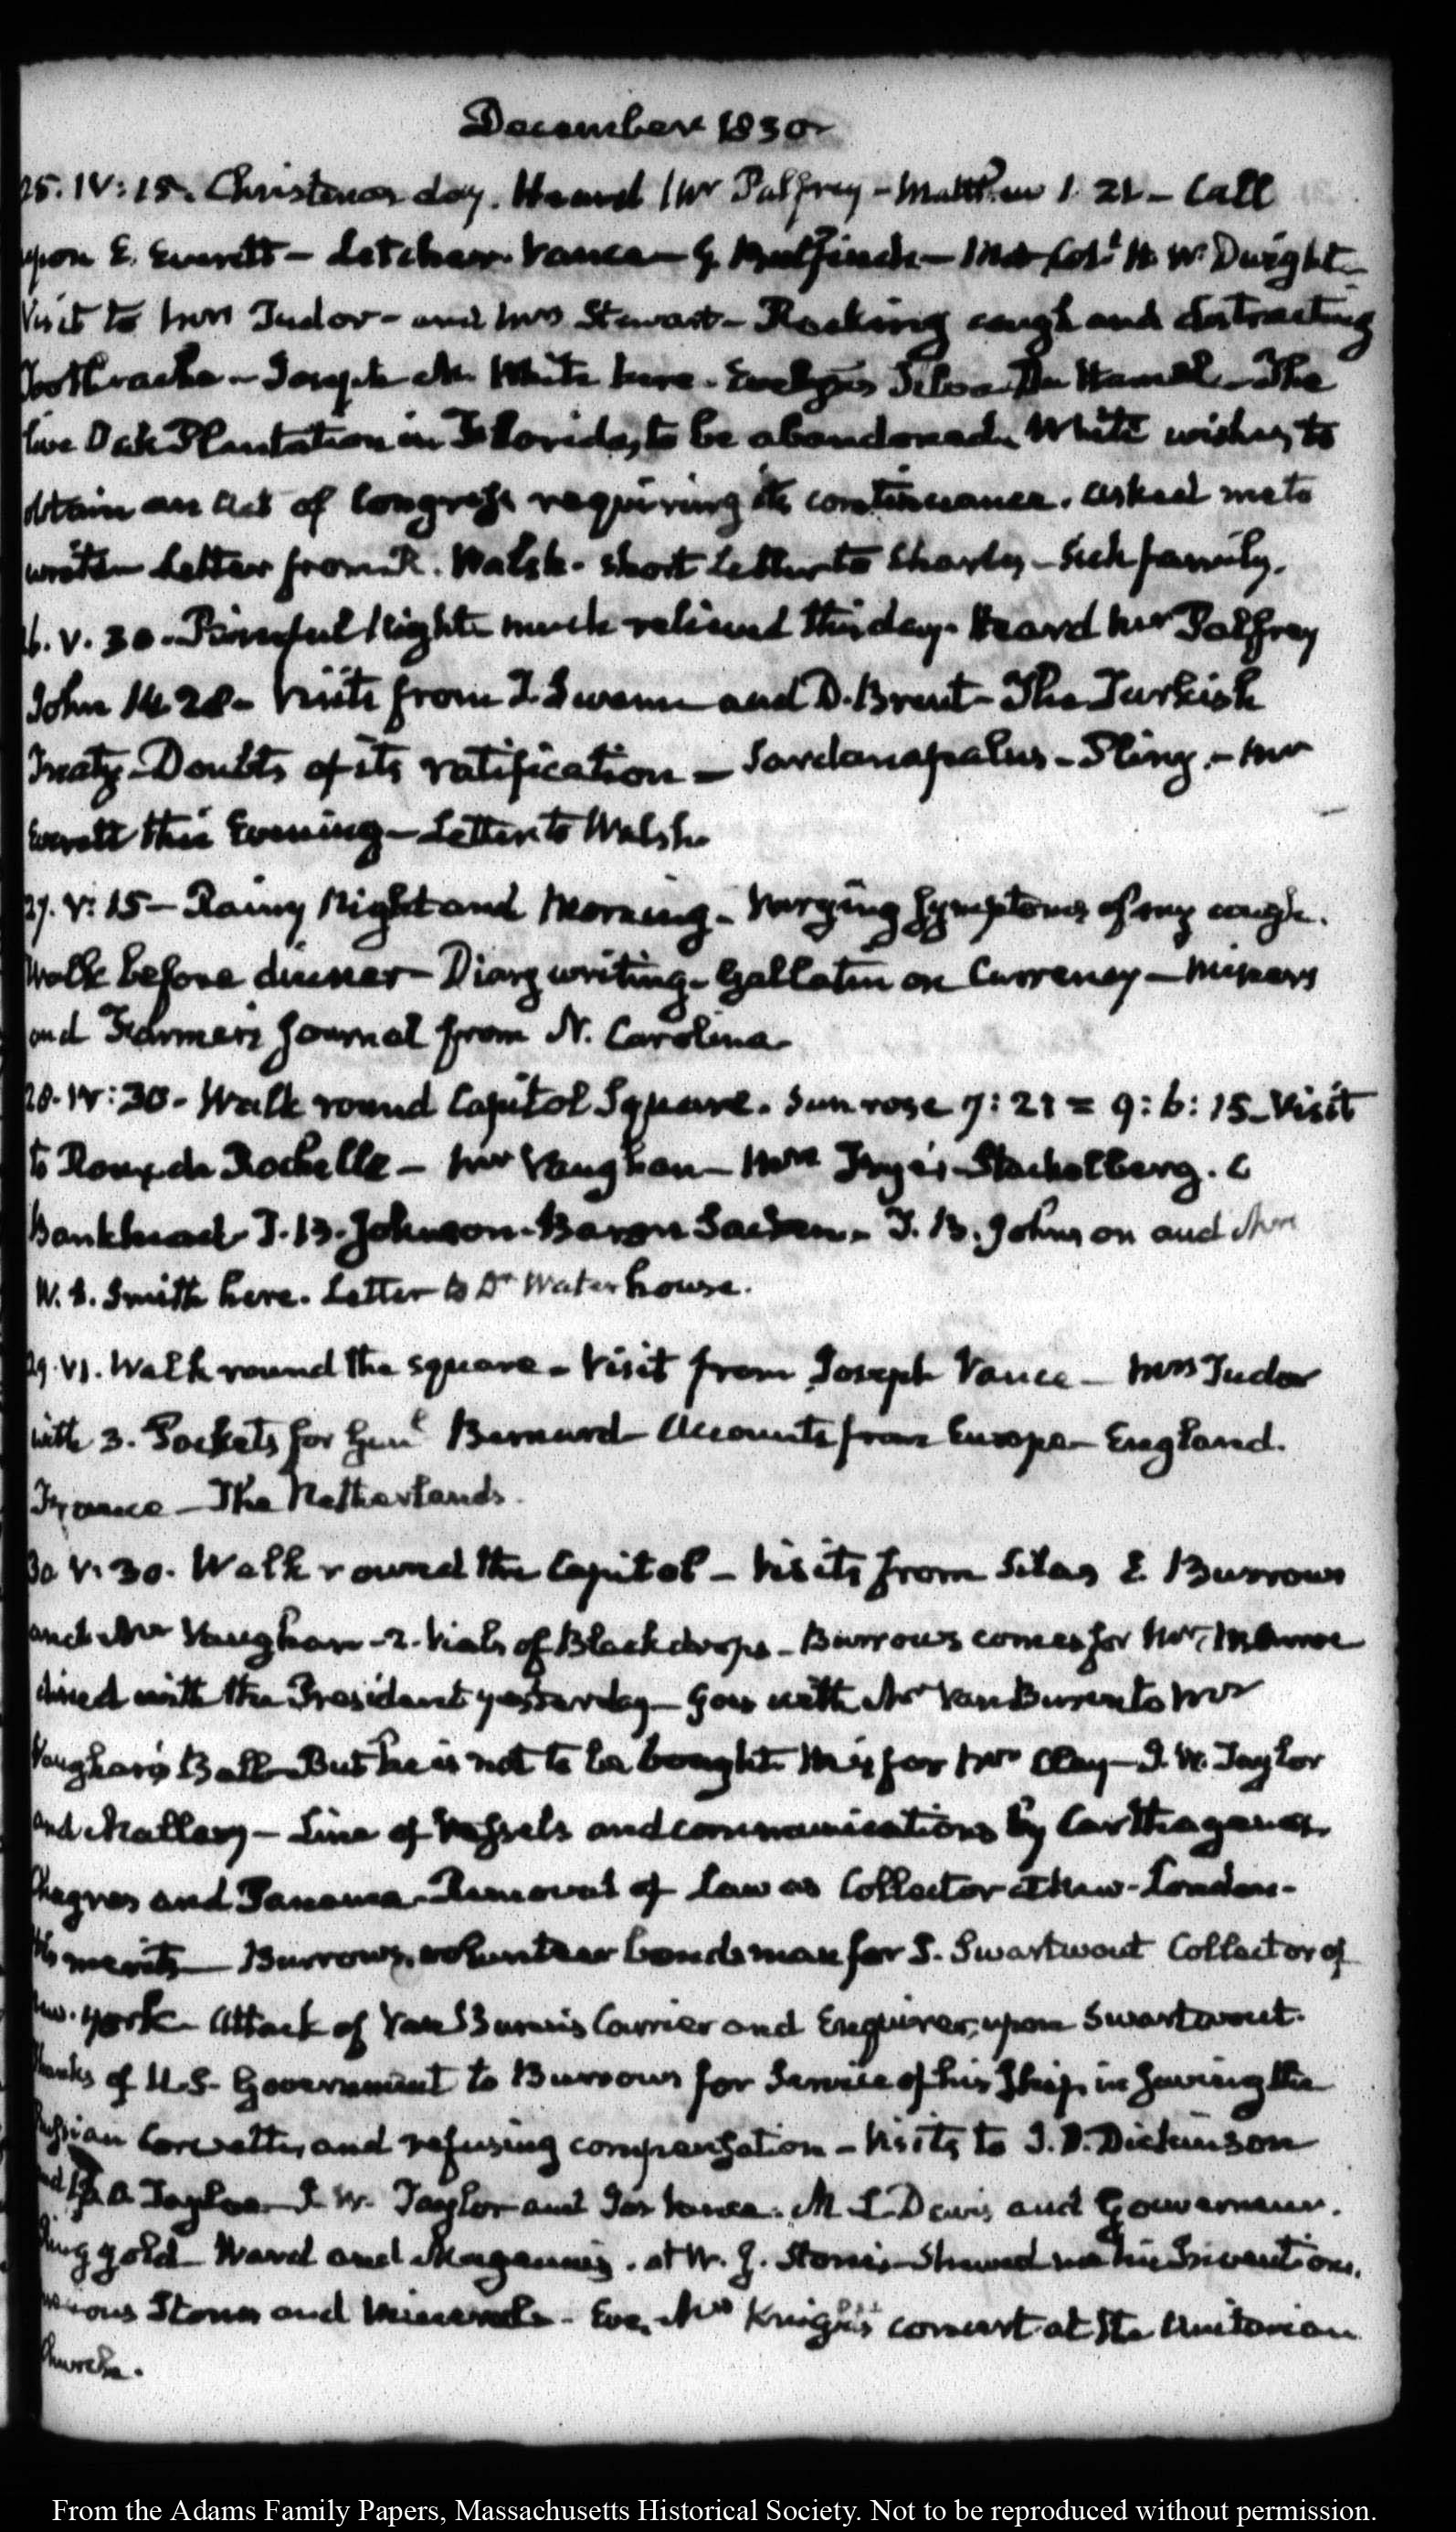 December 1830
25. IV:15. Christmas day. Heard Mr Palfrey – Matthew 1. 21 – Call
upon E. Everett – Letcher. Vance – G. Bulfinch – Met Col.l H. W. Dwight –
Visit to Mrs Tudor – and Mrs Stewart – Racking cough and distracting
Toothache – Joseph M. White here. The
live Oak Plantation in Florida, to be abandoned. White wishes to
obtain an Act of Congress requiring its continuance. asked me to
write – Letter from R. Walsh. short Letter to Charles – Sick family.
26. V. 30. Painful Night – much relieved this day. Heard Mr Palfrey
John 14. 28 – Visits from T. Swann and D. Brent – The Turkish
Treaty – Doubts of its ratification – Sardanapalus – Pliny. – Mr
Everett this Evening – Letter to Walsh.
27. V: 15 – Rainy Night and Morning – Varying Symptoms of my cough.
Walk before dinner – Diary writing – Gallatin on Currency – Miners
and Farmers Journal from N. Carolina –
28. IV: 30. Walk round Capitol Square. Sun rose 7: 21 = 9: 6: 15 – Visit
to Roux de Rochelle – Mr Vaughan – Mrs Frye's – Stackelberg. C
Bankhead – J. B. Johnson – Baron Sacken – J. B. Johnson and Mrs
W. S. Smith here. Letter to Dr Waterhouse.
29. VI. Walk round the square – Visit from Joseph Vance – Mrs Tudor
with 3. Packets for Genl Bernard – Accounts from Europe – England.
France – The Netherlands.
30 V: 30. Walk round the Capitol – Visits from Silas E. Burrows
and Mr Vaughan – 2. Vials of Black drops – Burrows comes for Mr Monroe
dined with the President yesterday – Goes with Mr Van Buren to Mr
Vaughan's Ball – But he is not to be bought. He is for Mr Clay – J. W. Taylor
and Mallary – Line of Vessels and communications by Carthagena,
Chagres and Panama – Removal of Law as Collector at New-London –
His merits – Burrows, volunteer bondsman for S. Swartwout Collector of
New. York – Attack of Van Buren's Courier and Enquirer, upon Swartwout.
Thanks of U.S. Government to Burrows for Service of his Ship, in saving the
Russian Corvette, and refusing compensation – Visits to J. D. Dickinson
and B. O. Tayloe – J. W. Taylor and Jos Vance. M. L. Davis and Gouverneur.
Ringgold – Ward and Magennis. at W. J. Stone's – Showed me his Inventions.
various Stones and Minerals – Eve, Mrs Knight's concert at the Unitarian
Church.
From the Adams Family Papers, Massachusetts Historical Society. Not to be reproduced without permission.